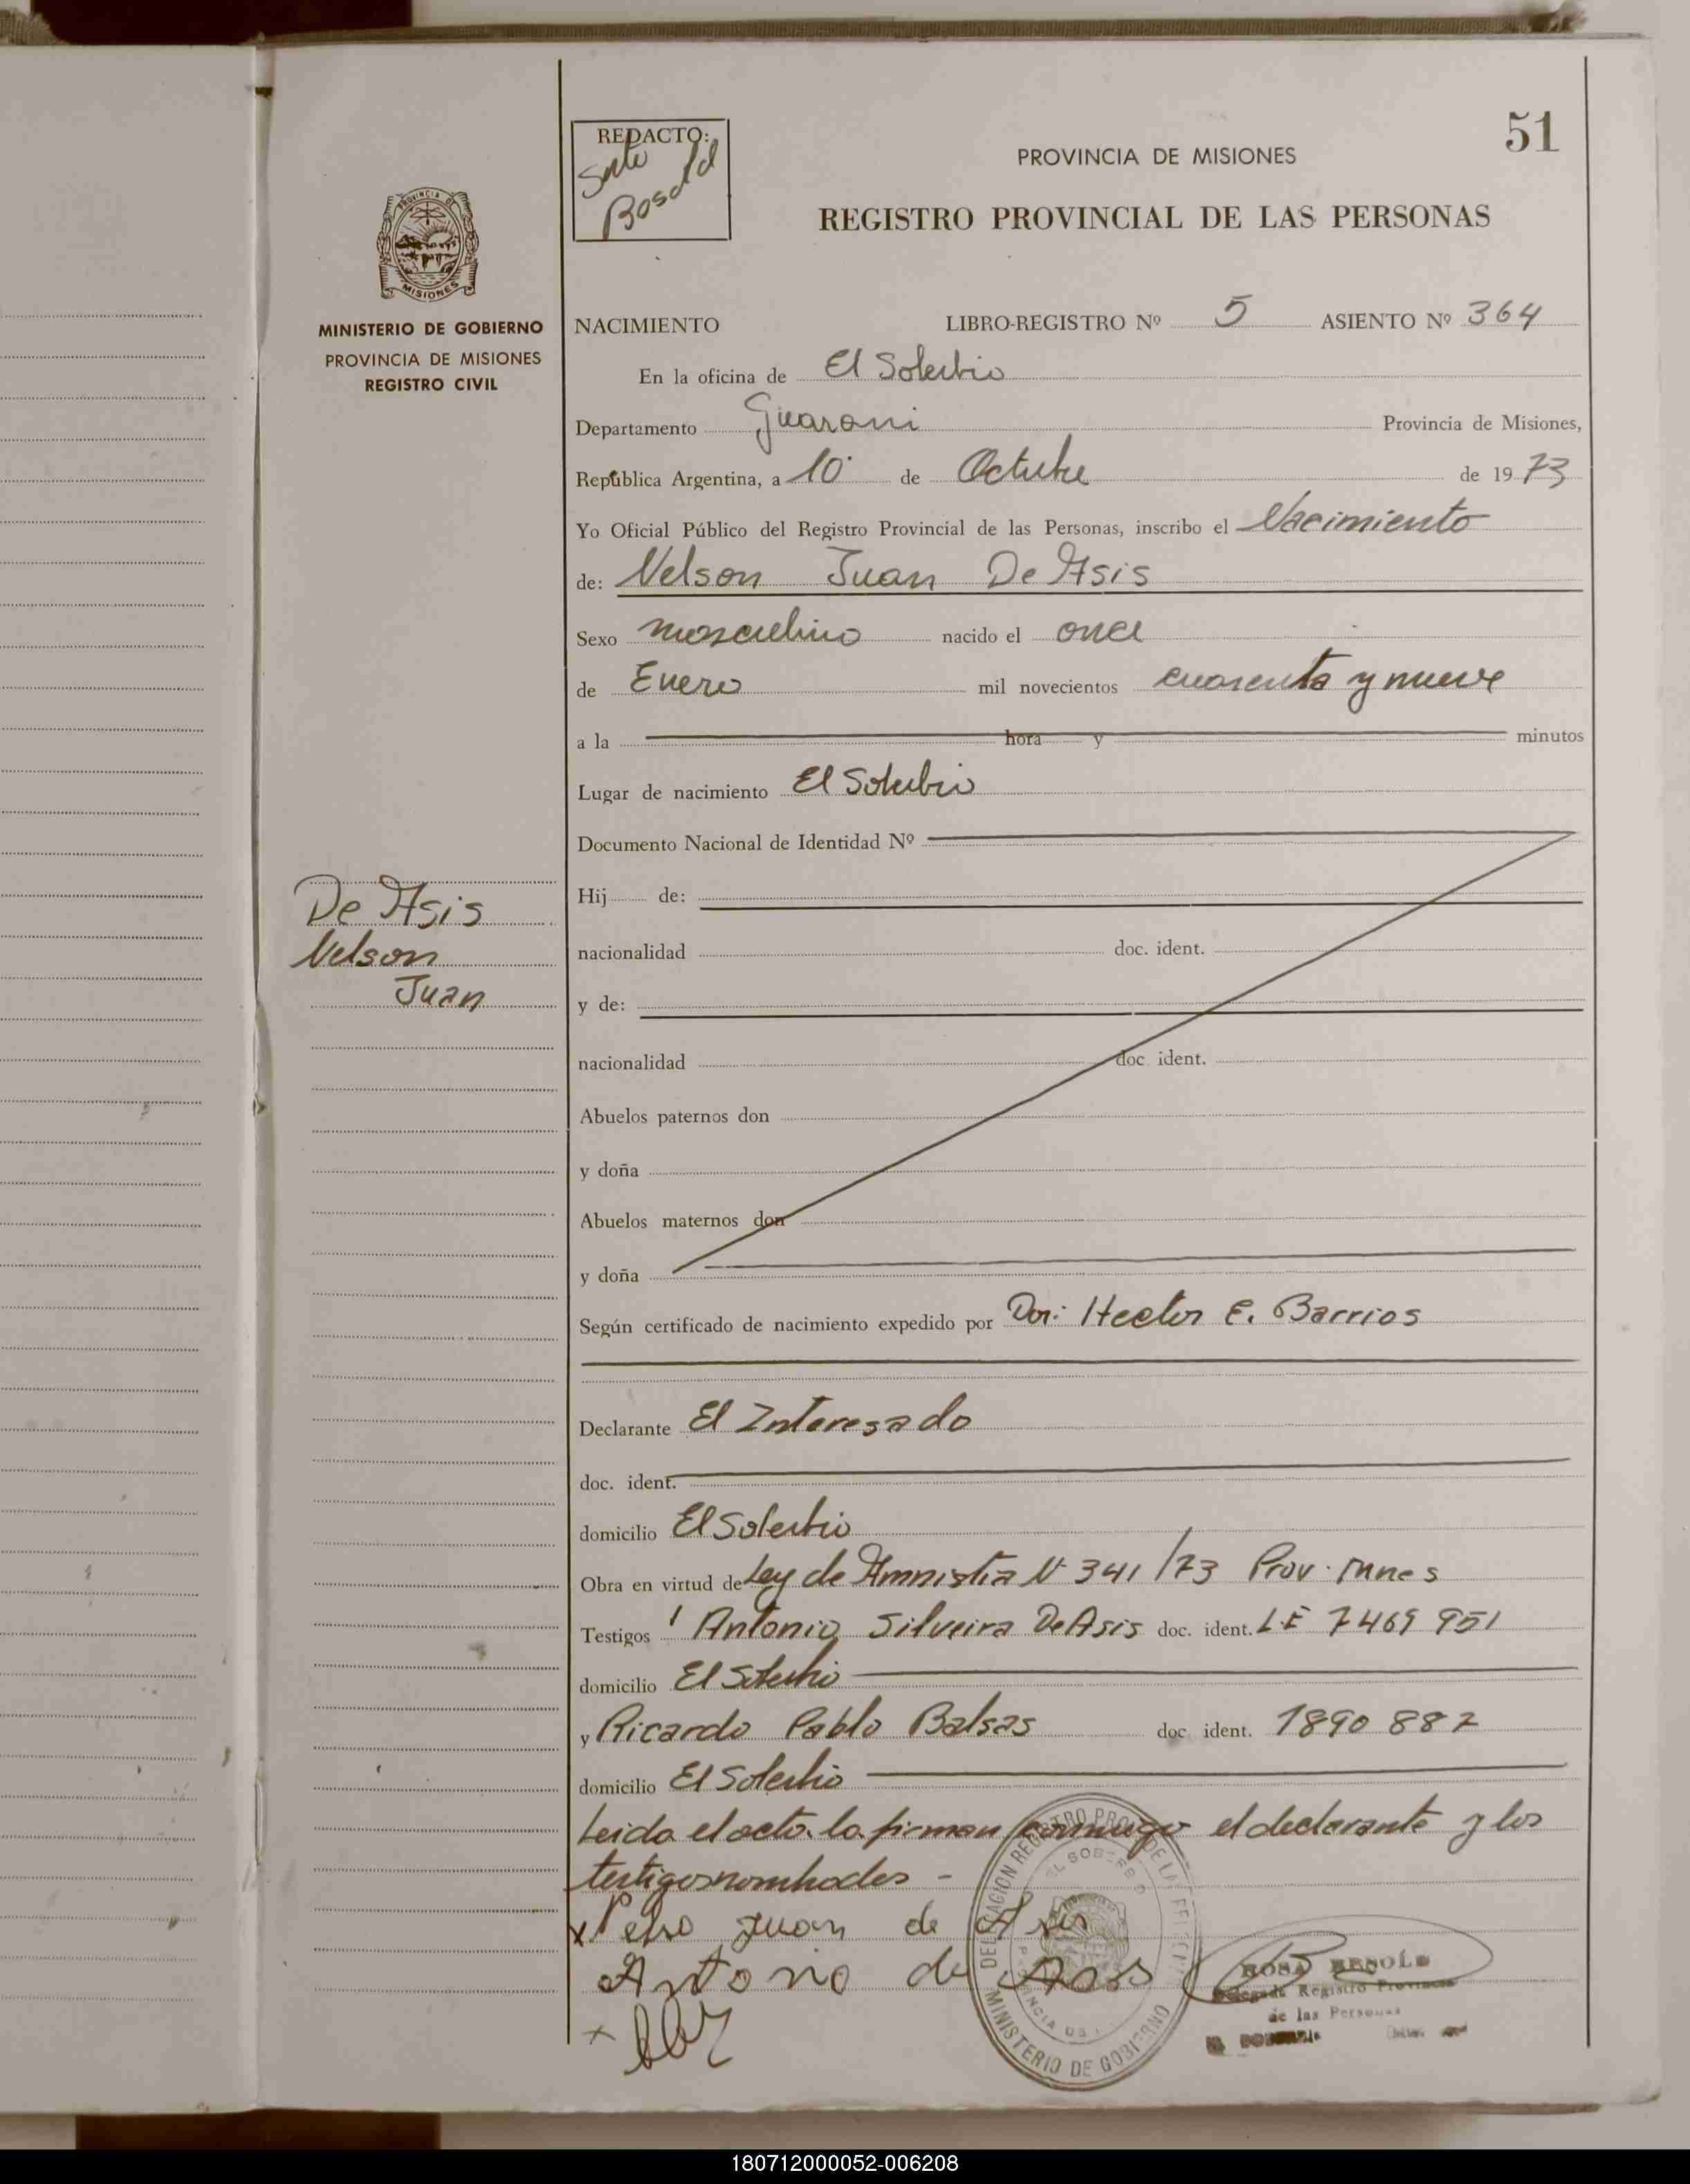 51
REDACTO:
PROVINCIA DE MISIONES
REGISTRO PROVINCIAL DE LAS PERSONAS
PROVINCIA DE
MISIONES
MINISTERIO DE GOBIERNO
PROVINCIA DE MISIONES
REGISTRO CIVIL
NACIMIENTO LIBRO-REGISTRO Nº 5 ASIENTO Nº 364
En la oficina de El Soberbio
Departamento Guarani Provincia de Misiones,
República Argentina, a 10 de Octubre de 1973
Yo Oficial Público del Registro Provincial de las Personas, inscribo el Nacimiento
de: Nelson Juan De Asis
Sexo masculino nacido el once
de Enero mil novecientos cuarenta y nueve
a la hora y minutos
Lugar de nacimiento El Soberbio
Documento Nacional de Identidad Nº
De Asis
Nelson
Juan
Hij de:
nacionalidad doc. ident.
y de:
nacionalidad doc. ident.
Abuelos paternos don
y doña
Abuelos maternos don
y doña
Según certificado de nacimiento expedido por Dor: Hector E. Barrios
Declarante El Interesado
doc. ident.
domicilio El Soberbio
Obra en virtud de Ley de Amnistia Nº 341/73 Prov. Mnes
Testigos Antonio Silveira De Asis doc. ident. LE 7469951
domicilio El Soberbio
y Ricardo Pablo Balsas doc. ident. 1890882
domicilio El Soberbio
Leida el acta la firman conmigo el declarante y los
testigos nombrados -
x Nelso Juan de Asis
Antonio de Asis
x
MINISTERIO DE GOBIERNO
Delegada Registro Provincial
de las Personas
180712000052-006208